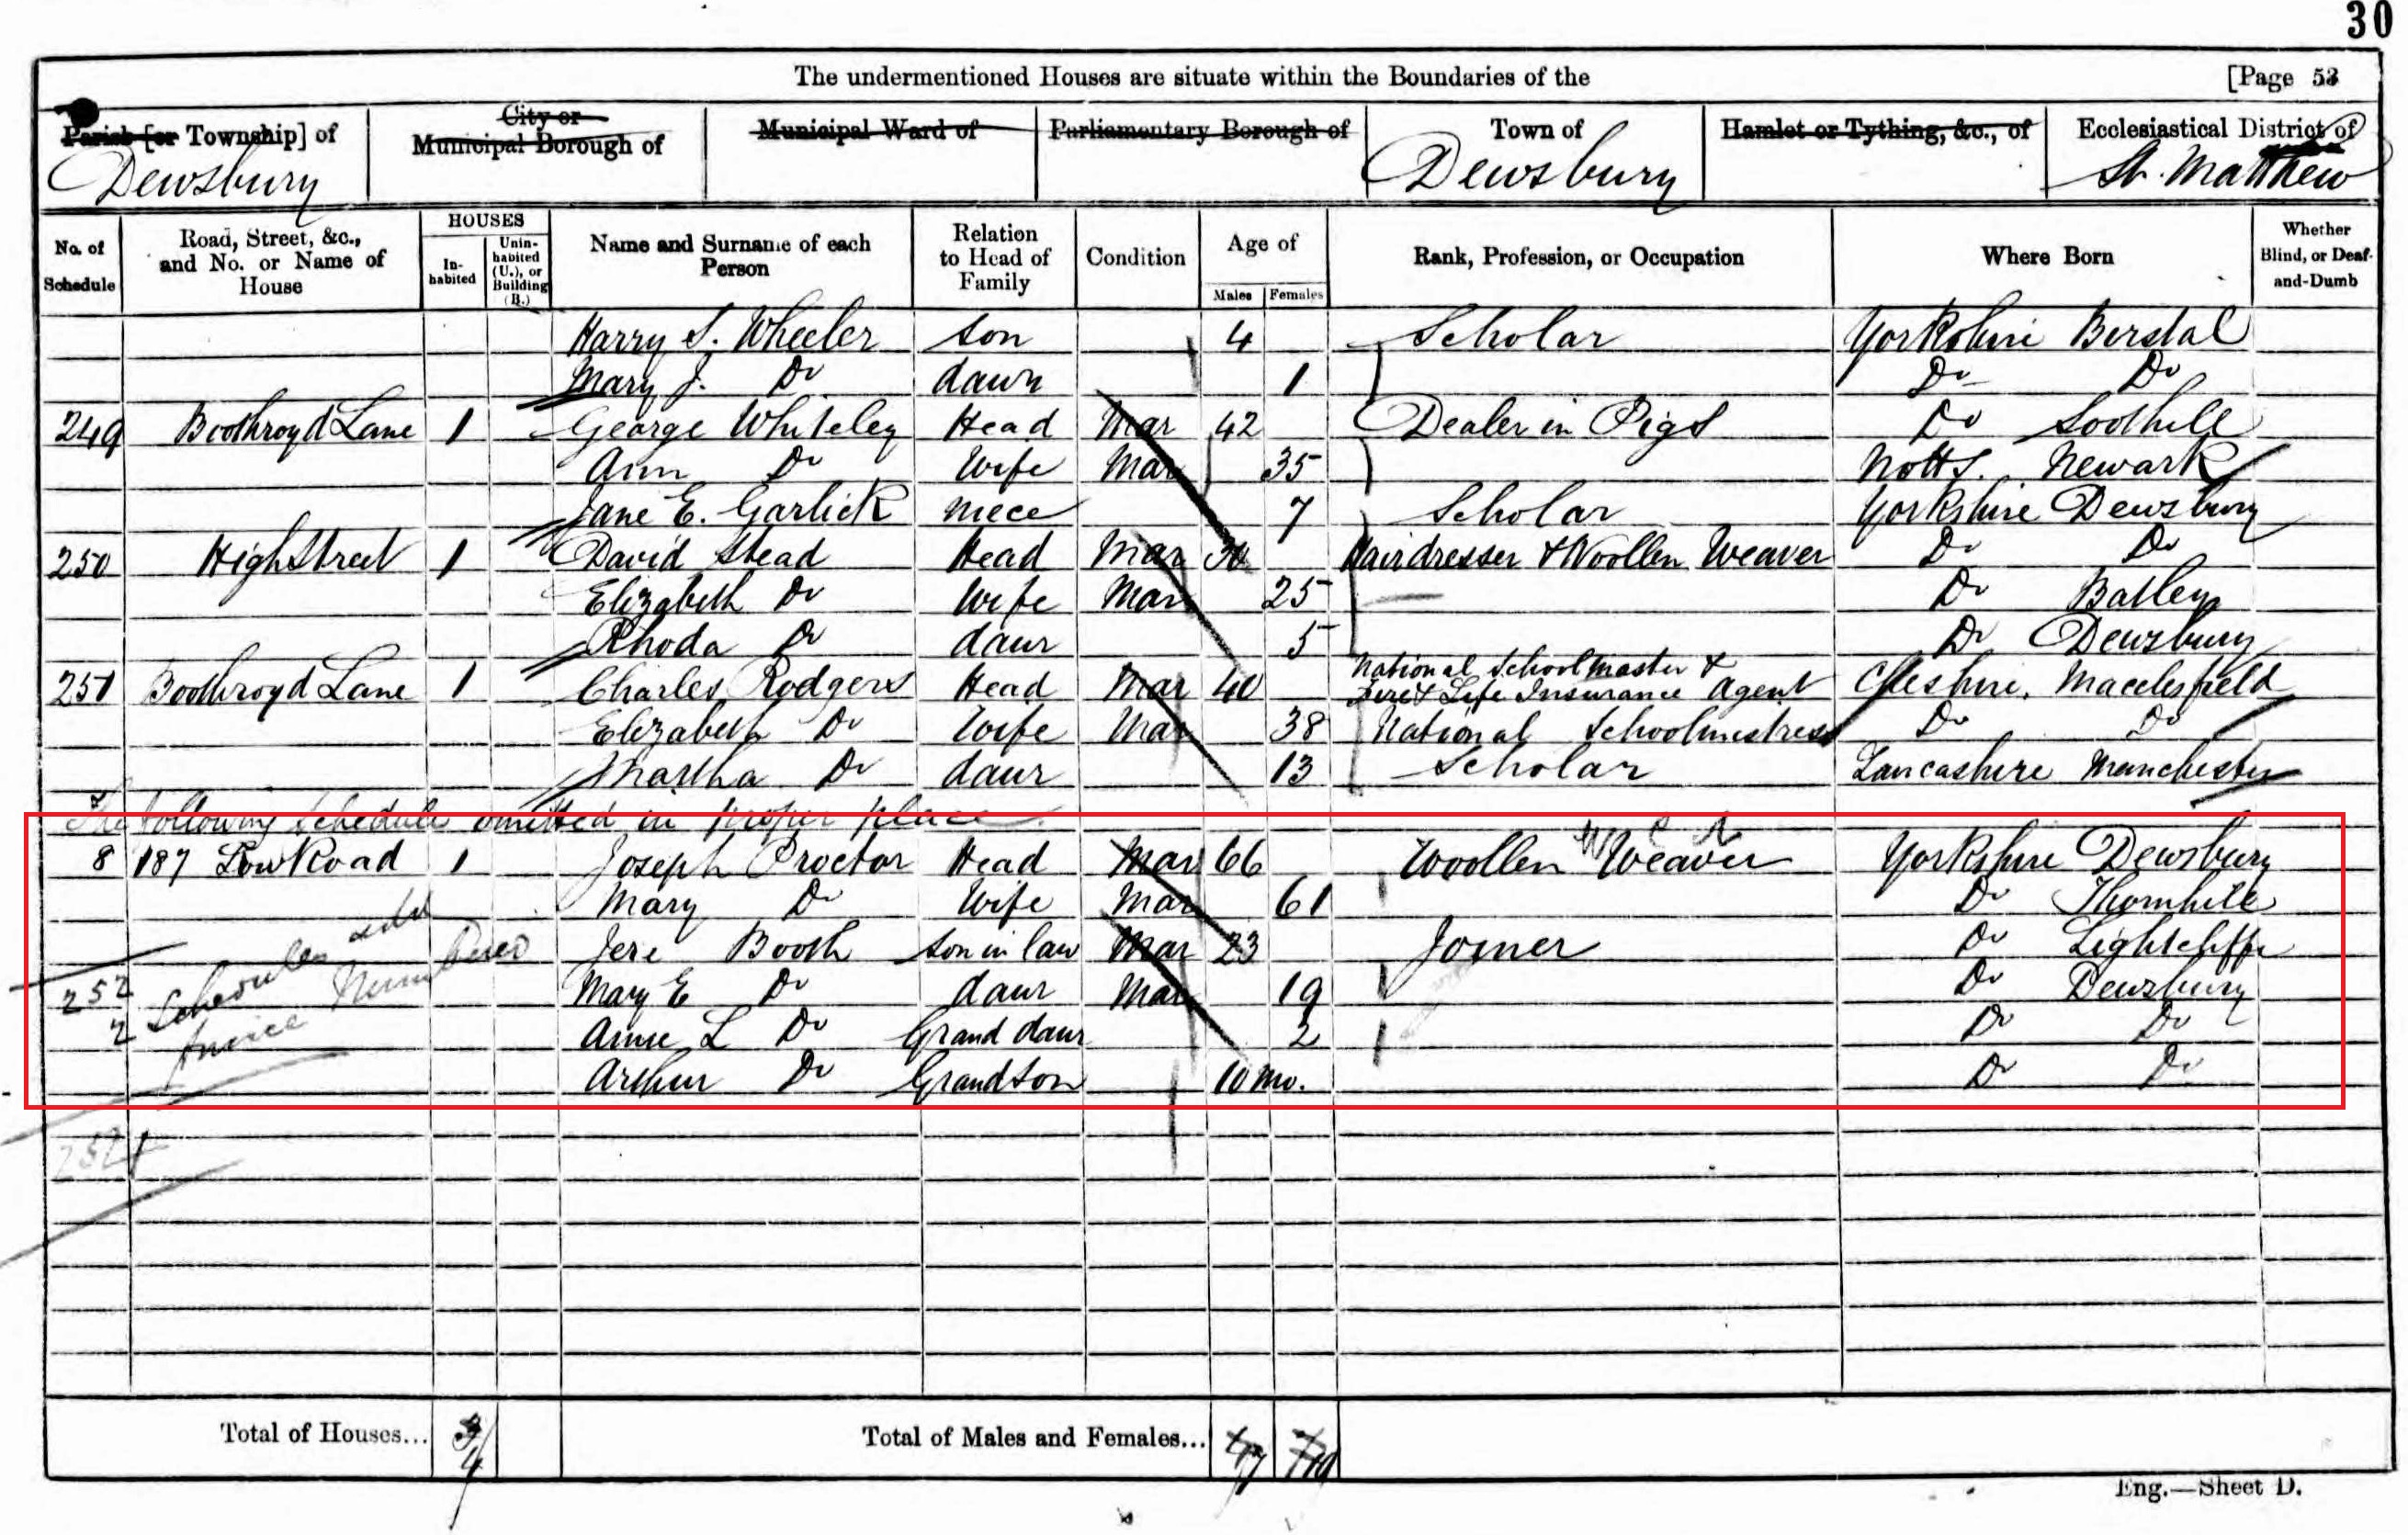 30
The undermentioned Houses are situate within the Boundaries of the [Page 53
Parish [or Township] of City or Municipal Borough of Municipal Ward of Parliamentary Borough of Town of Hamlet or Tything, &c., of Ecclesiastical District of
Dewsbury Dewsbury St. Matthew
No. of Schedule Road, Street, &c., and No. or Name of House HOUSES Inhabited Uninhabited (U.), or Building (B.) Name and Surname of each Person Relation to Head of Family Condition Age of Males Females Rank, Profession, or Occupation Where Born Whether Blind, or Deaf-and-Dumb
Harry S. Wheeler son 4 Scholar Yorkshire Birstal
Mary J. Do daur 1 Do Do
249 Boothroyd Lane 1 George Whiteley Head Mar 42 Dealer in Pigs Do Soothill
Ann Do Wife Mar 35 Notts. Newark
Jane E. Garlick niece 7 Scholar Yorkshire Dewsbury
250 High Street 1 David Stead Head Mar Hairdresser & Woollen Weaver Do Do
Elizabeth Do Wife Mar 25 Do Batley
Rhoda Do daur 5 Do Dewsbury
251 Boothroyd Lane 1 Charles Rodgers Head Mar 40 National Schoolmaster & Fire & Life Insurance Agent Cheshire. Macclesfield
Elizabeth Do Wife Mar 38 National Schoolmistress Do Do
Martha Do daur 13 Scholar Lancashire Manchester
The following Schedule omitted in proper place.
8 187 Low Road 1 Joseph Proctor Head Mar 66 Woollen Weaver Yorkshire Dewsbury
Mary Do Wife Mar 61 Do Thornhill
Jere Booth son in law Mar 23 Joiner Do Lightcliffe
252 Mary E Do daur Mar 19 Do Dewsbury
2 Schedules Numbered twice
Annie L Do Grand daur 2 Do Do
Arthur Do Grandson 10 mo. Do Do
Total of Houses... 4 Total of Males and Females... 7 10
Eng.—Sheet D.